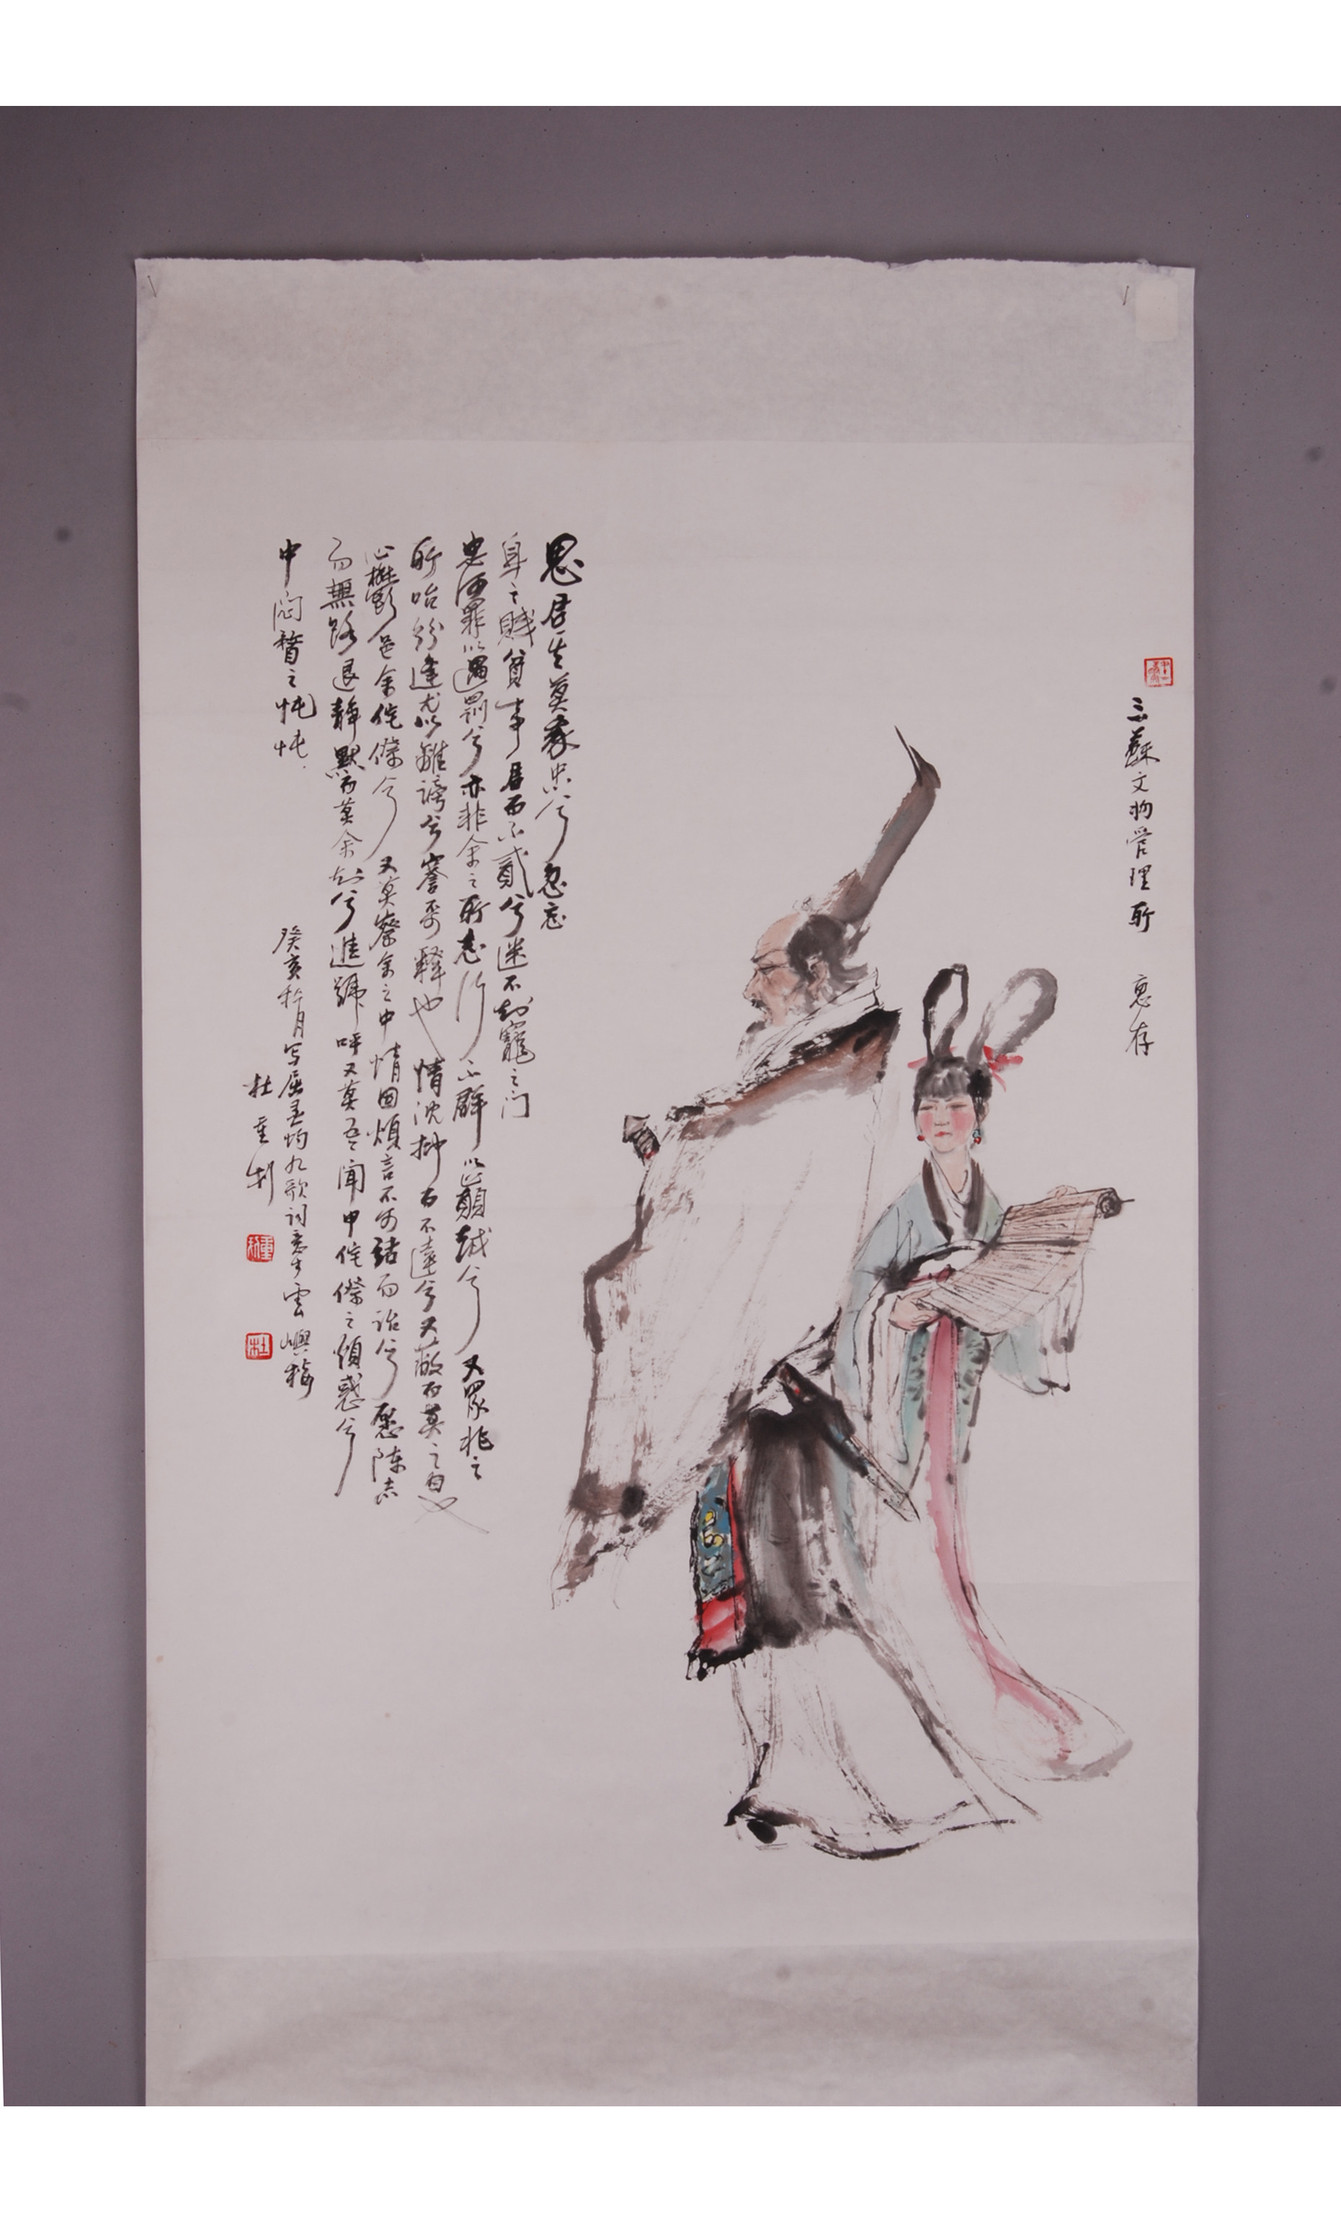 三蘇文物管理所 惠存
思君其莫我忠兮忽忘
身之賤貧事君而不貳兮迷不知寵之门
忠何罪以遇罰兮亦非余之所志行不群以巔越兮又眾兆之
所咍紛逢尤以離謗兮謇不可釋也情沈抑而不達兮又蔽而莫之白也
心鬱邑余侘傺兮又莫察余之中情固煩言不可結而詒兮愿陈志
而無路退静默而莫余知兮進號呼又莫吾闻申侘傺之煩惑兮
中闷瞀之忳忳
癸亥秋月写屈灵均九歌词意於雲嶼楼
杜重划